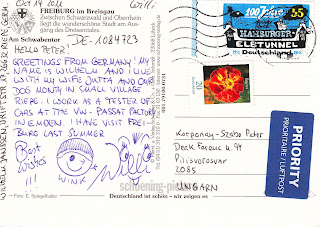 Oct 14 2011
FREIBURG im Breisgau
Zwischen Schwarzwald und Oberrhein
liegt die wunderschöne Stadt am
Am Schwabentor
DE-1084723
HELLO PETER!
GREETINGS FROM GERMANY! MY
NAME IS WILHELM AND I LIVE
WITH MY WIFE JUTTA AND OUR
DOG MONTY IN SMALL VILLAGE
RIEPE. I WORK AS A TESTER OF
CARS AT THE VW-PASSAT FACTORY
IN EMDEN. I HAVE VISIT FREI-
BURG LAST SUMMER
Best
Wishes
!!!
WINK
Willi
schoening-
© Foto: E. Spiegelhalter
Deutschland ist schön – wir zeigen es
WILHELM JANSSEN,
26632 RIEPE, GERM.
100 Jahre
HAMBURGER
ELBTUNNEL
Deutschland
55
20
Korponay-Szabo Peter
Deak Ferenc u. 94
Pilisvorosvar
2085
UNGARN
PRIORITY
PRIORITAIRE / LUFTPOST